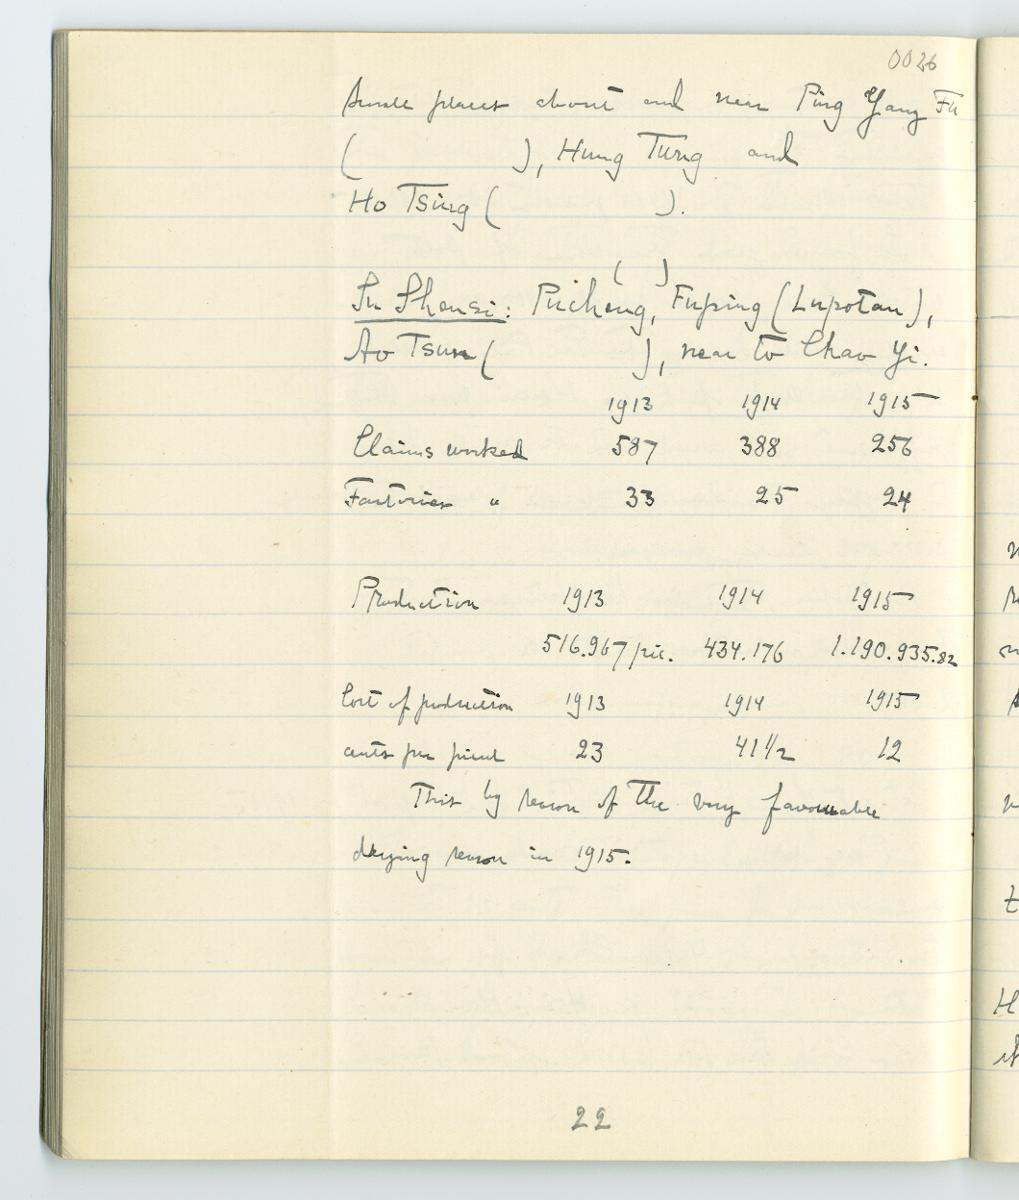 0026
Small places about and near Ping Yang Fu
( ), Hung Tung and
Ho Tsing ( ).
( )
In Shensi: Pucheng, Fuping (Lupotan),
Ao Tsun ( ), near to Chao Yi.
1913 1914 1915
Claims worked 587 388 256
Factories " 33 25 24
Production 1913 1914 1915
516.967 pic. 434.176 1.190.935.82
Cost of production 1913 1914 1915
cents per picul 23 41 1/2 12
This by reason of the very favourable
drying season in 1915.
22